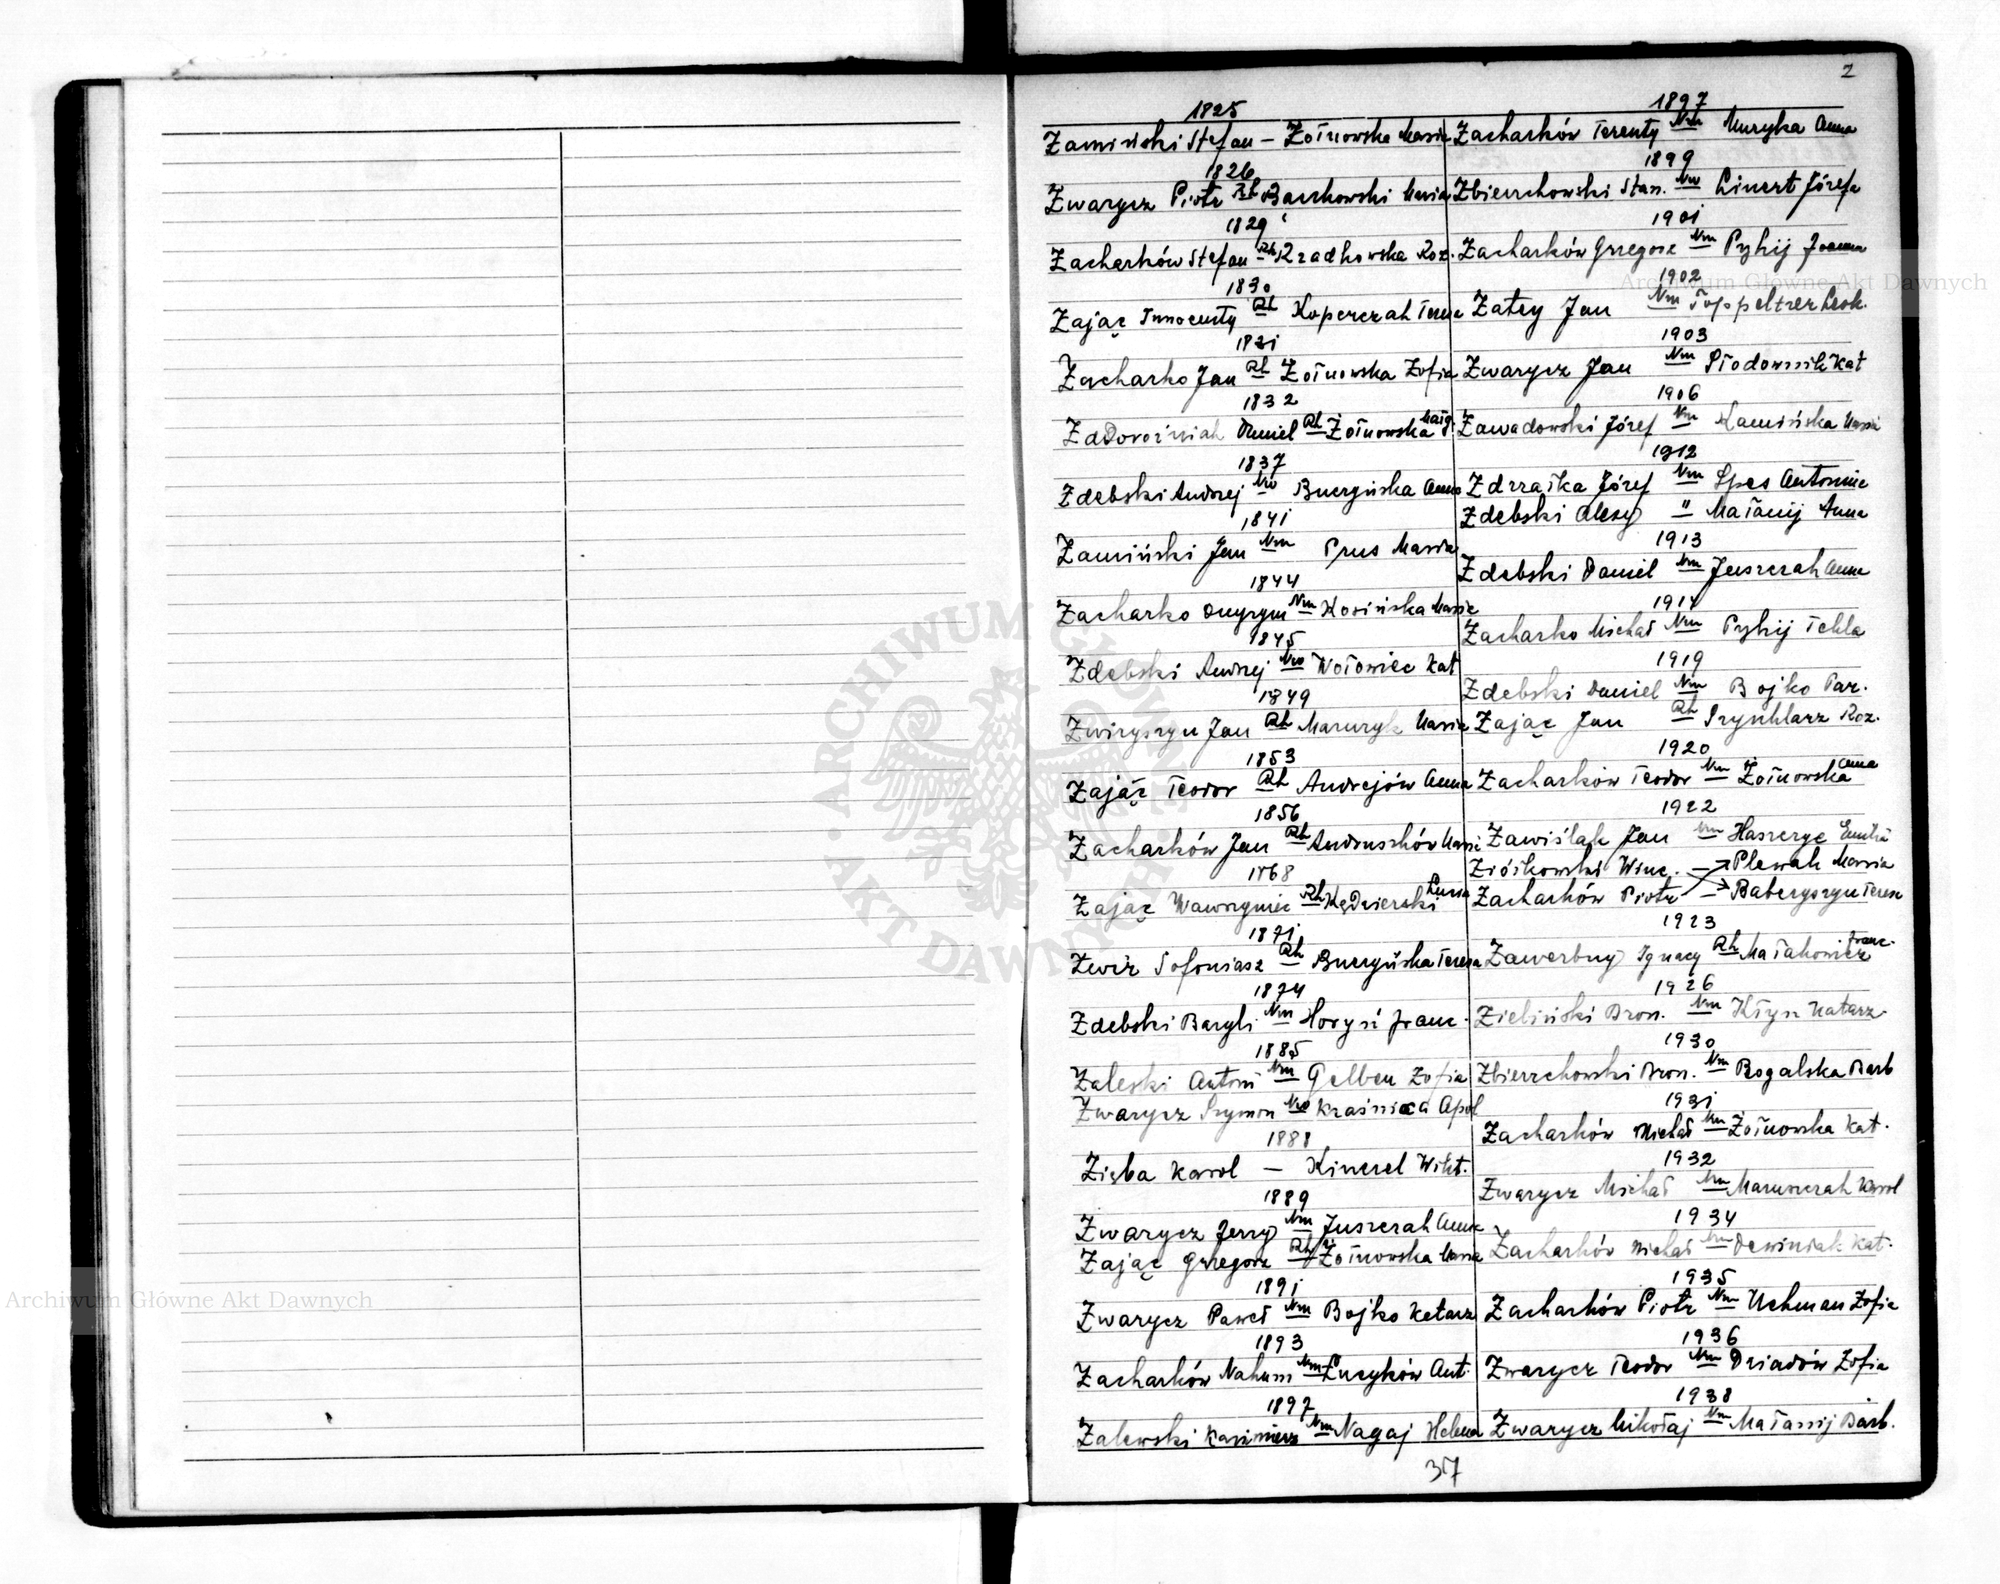 Z
1825
Zamiński Stefan – Żołnowska Maria
1826
Zwarycz Piotr Rh Baczkowski Maria
1829
Zacharków Stefan Rh Rzadkowska Roz.
1830
Zając Innocenty Rh Koperczak Teresa
1831
Zacharko Jan Rh Żołnowska Zofia
1832
Zadorożniak Daniel Rh Żołnowska Małg.
1837
Zdebski Andrzej No Buczyńska Anna
1841
Zamiński Jan Nm Prus Maria
1844
Zacharko Onyszym Nm Kosińska Maria
1845
Zdebski Andrzej No Wołowiec Kat
1849
Zwiryszyn Jan Rh Mazuryk Maria
1853
Zając Teodor Rh Andrejów Anna
1856
Zacharków Jan Rh Andruszków Maria
1868
Zając Wawrzyniec Rh Kędzierski Lucia
1871
Zwir Sofoniasz Rh Buczyńska Teresa
1874
Zdebski Bazyli Nm Horyń Franc.
1885
Zaleski Antoni Nm Gelben Zofia
Zwarycz Szymon No Kraśnica Apol
1888
Zięba Karol – Kinczel Wikt.
1889
Zwarycz Jerzy Nm Juszczak Anna
Zając Grzegorz Rh Żołnowska Maria
1891
Zwarycz Paweł Nm Bojko Katarz
1893
Zacharków Nahum Nm Łucyków Ant.
1897
Zalewski Kazimierz Nm Nagaj Helena
1897
Zacharków Terenty Nm Muryka Anna
1899
Zbierzchowski Stan. No Linert Józefa
1901
Zacharków Grzegorz Nm Pyhij Joanna
1902
Zatey Jan Nm Toppeltzer Leok.
1903
Zwarycz Jan Nm Słodownik Kat
1906
Zawadowski Józef Nm Kamińska Maria
1912
Zdrzałka Józef Nm Spes Antonina
Zdebski Alexy " Małanij Anna
1913
Zdebski Daniel Nm Juszczak Anna
1914
Zacharko Michał Nm Pyhij Tekla
1919
Zdebski Daniel Nm Bojko Par.
Zając Jan Rh Szychlarz Roz.
1920
Zacharków Teodor Nm Żołnowska Anna
1922
Zawiślak Jan Nm Haszczyc Emilia
Ziółkowski Winc. – Plewak Maria
Zacharków Piotr – Baberyszyn Teresa
1923
Zawerbny Ignacy Rh Małakowicz Franc.
1926
Zieliński Bron. Nm Kłysz Katarz.
1930
Zbierzchowski Bron. Nm Rogalska Barb
1931
Zacharków Michał Nm Żołnowska Kat.
1932
Zwarycz Michał Nm Maruszczak Karol
1934
Zacharków Michał Nm Dewiniak Kat.
1935
Zacharków Piotr Nm Uchman Zofia
1936
Zwarycz Teodor Nm Dziadów Zofia
1938
Zwarycz Mikołaj Nm Małanij Barb.
37
Archiwum Główne Akt Dawnych
Archiwum Główne Akt Dawnych
ARCHIWUM GŁÓWNE AKT DAWNYCH